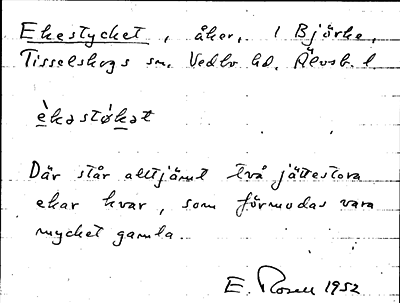 Ekestycket, åker, i Björke,
Tisselskogs sn. Vedbo hd. Älvsb. l
èkəstø̀kət
Där står alltjämt två jättestora
ekar kvar, som förmodas vara
mycket gamla.
E. Rosell 1952